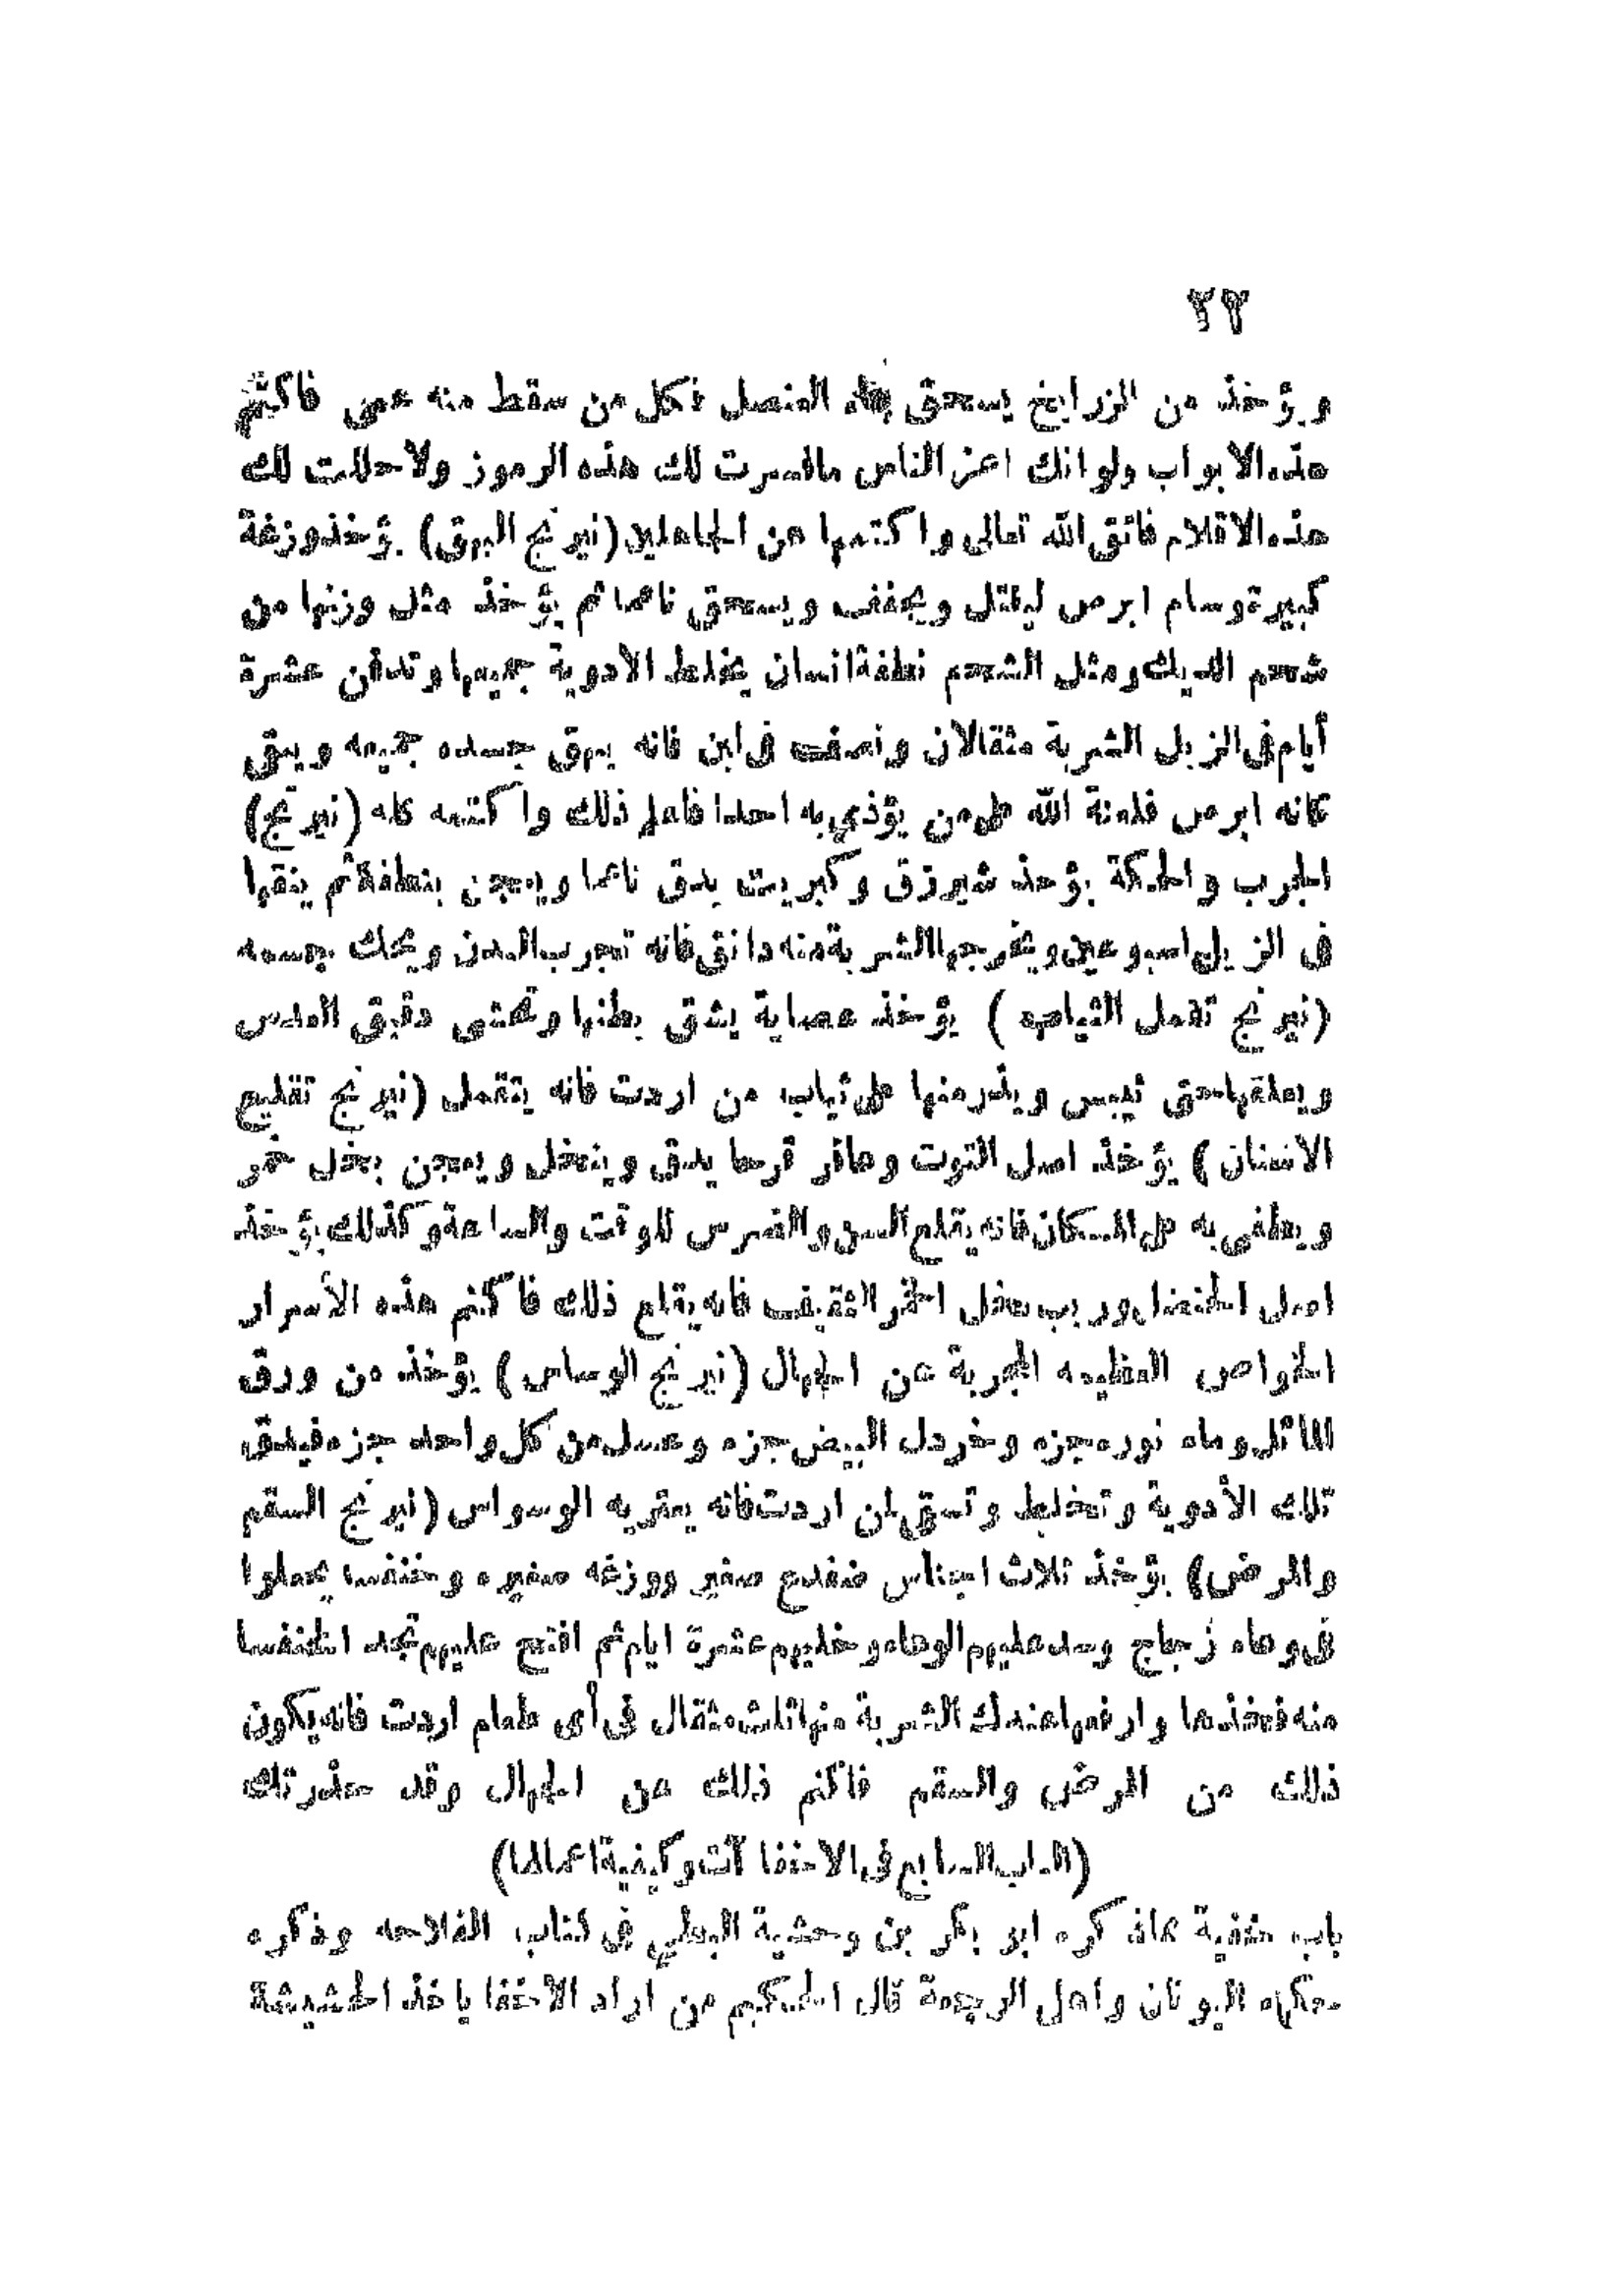 ٣٢
ويؤخذ من الزرانيخ يسحق بماء العنصل فكل من سقط منه عمى فاكتم
هذه الابواب ولو انك اعز الناس مافسرت لك هذه الرموز ولا حللت لك
هذه الاقلام فاتق الله تعالى واكتمها عن الجاهلين (نيرنج البرق) يؤخذ وزغة
كبيرة وسام ابرص ليقتل ويجفف ويسحق ناعما ثم يؤخذ مثل وزنها من
شحم الديك ومثل الشحم نطفة انسان يخلط الادوية جميعها وتدفن عشرة
أيام فى الزبل الشربة مثقالان ونصف فى لبن فانه يبرق جسده جميعه ويبقى
كانه ابرص فلعنة الله على من يؤذي به احدا فاعلم ذلك واكتمه كله (نيرنج)
الجرب والحكة يؤخذ شيرزق وكبريت يدق ناعما ويعجن بنطفة ثم ينقها
فى الزبل اسبوعين ويخرجها الشربة منه دانق فانه تجرب البدن ويحك جسمه
(نيرنج تقمل الثياب) يؤخذ عصاية يشق بطنها وتحشى دقيق العدس
ويعلقها حتى تيبس ويذر منها على ثياب من اردت فانه يتقمل (نيرنج تقليع
الاسنان) يؤخذ اصل التوت وعاقر قرحا يدق وينخل ويعجن بخل خمر
ويطلى به على المكان فانه يقلع السن والضرس للوقت والساعة وكذلك يؤخذ
اصل الحنضل وريب بخل الخمر الثقيف فانه يقلع ذلك فاكتم هذه الأسرار
الخواص العظيمه المجربة عن الجهال (نيرنج الوساس) يؤخذ من ورق
الماثل وماء نوره جزه وخردل البيض جزه وعسل من كل واحد جزه فيدق
تلك الأدوية وتخلط وتسقى لمن اردت فانه يعتريه الوسواس (نيرنج السقم
والمرض) يؤخذ ثلاث اجناس ضفدع صغير ووزغه صغيره وخنفسا يجعلوا
فى وعاء زجاج وسد عليهم الوعاء وخليهم عشرة ايام ثم افتح عليهم تجد الخنفسا
منه فخذها وارفعها عندك الشربة منها ثلث مثقال فى أى طعام اردت فانه يكون
ذلك من المرض والسقم فاكتم ذلك عن الجهال وقد حذرتك
(الباب السابع فى الاخفا آت وكيفية اعمالها)
باب خفية مماذكره ابو بكر بن وحشية النبطي فى كتاب الفلاحه وذكره
حكماء اليونان واهل الرحمة قال الحكيم من اراد الاخفا ياخذ الحشيشة